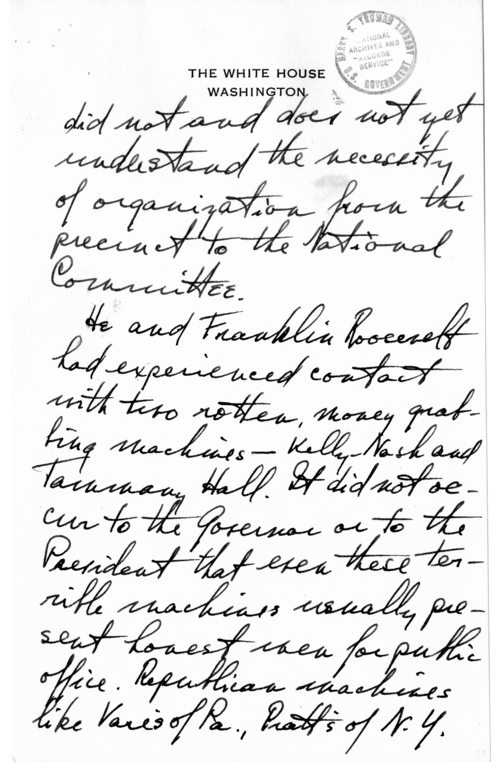 HARRY S. TRUMAN LIBRARY
"NATIONAL
ARCHIVES AND
RECORDS
SERVICE"
U.S. GOVERNMENT
THE WHITE HOUSE
WASHINGTON
did not and does not yet
understand the necessity
of organization from the
precinct to the National
Committee.
He and Franklin Roosevelt
had experienced contact
with two rotten, money grab-
bing machines — Kelly-Nash and
Tammany Hall. It did not oc-
cur to the Governor or to the
President that even these ter-
rible machines usually pre-
sent honest men for public
office. Republican machines
like Vare's of Pa., Platt's of N.Y.